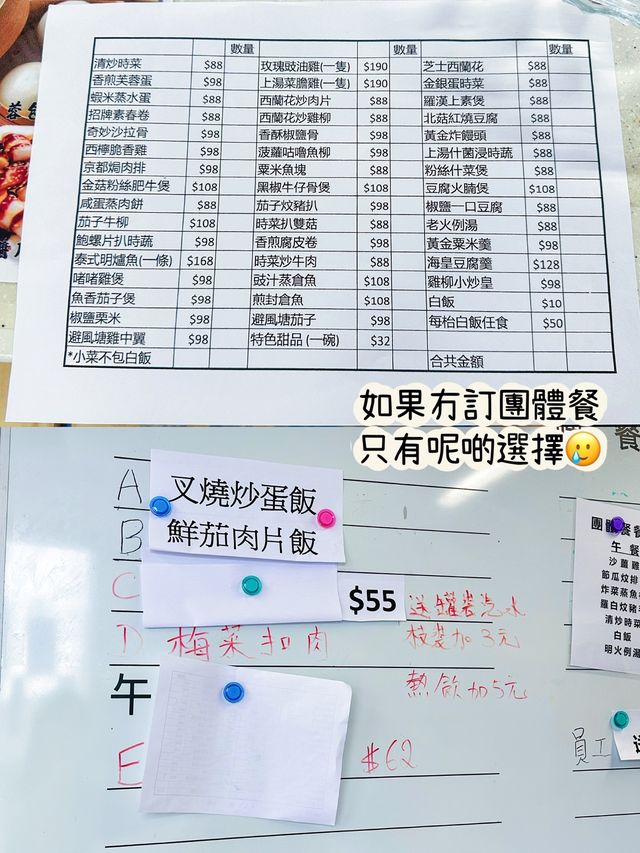 數量 數量 數量
清炒時菜 $88 玫瑰豉油雞(一隻) $190 芝士西蘭花 $88
香煎芙蓉蛋 $98 上湯菜膽雞(一隻) $190 金銀蛋時菜 $88
蝦米蒸水蛋 $88 西蘭花炒肉片 $88 羅漢上素煲 $88
招牌素春卷 $88 西蘭花炒雞柳 $88 北菇紅燒豆腐 $88
奇妙沙拉骨 $98 香酥椒鹽骨 $98 黃金炸饅頭 $88
西檸脆香雞 $98 菠蘿咕嚕魚柳 $98 上湯什菌浸時蔬 $88
京都焗肉排 $98 粟米魚塊 $88 粉絲什菜煲 $88
金菇粉絲肥牛煲 $108 黑椒牛仔骨煲 $108 豆腐火腩煲 $108
咸蛋蒸肉餅 $88 茄子炆豬扒 $98 椒鹽一口豆腐 $88
茄子牛柳 $108 時菜扒雙菇 $88 老火例湯 $88
鮑螺片扒時蔬 $98 香煎腐皮卷 $98 黃金粟米羹 $98
泰式明爐魚(一條) $168 時菜炒牛肉 $88 海皇豆腐羹 $128
啫啫雞煲 $98 豉汁蒸倉魚 $108 雞柳小炒皇 $98
魚香茄子煲 $98 煎封倉魚 $108 白飯 $10
椒鹽栗米 $98 避風塘茄子 $98 每枱白飯任食 $50
避風塘雞中翼 $98 特色甜品 (一碗) $32
*小菜不包白飯 合共金額
如果冇訂團體餐
只有呢啲選擇
餐
A 叉燒炒蛋飯
B 鮮茄肉片飯
C $55 送罐裝汽水
D 梅菜扣肉 枝裝加3元
午 熱飲加5元
E $62
團體餐
午餐
沙薑雞
節瓜炆排
炸菜蒸魚
羅白炆豬
清炒時菜
白飯
明火例湯
員工